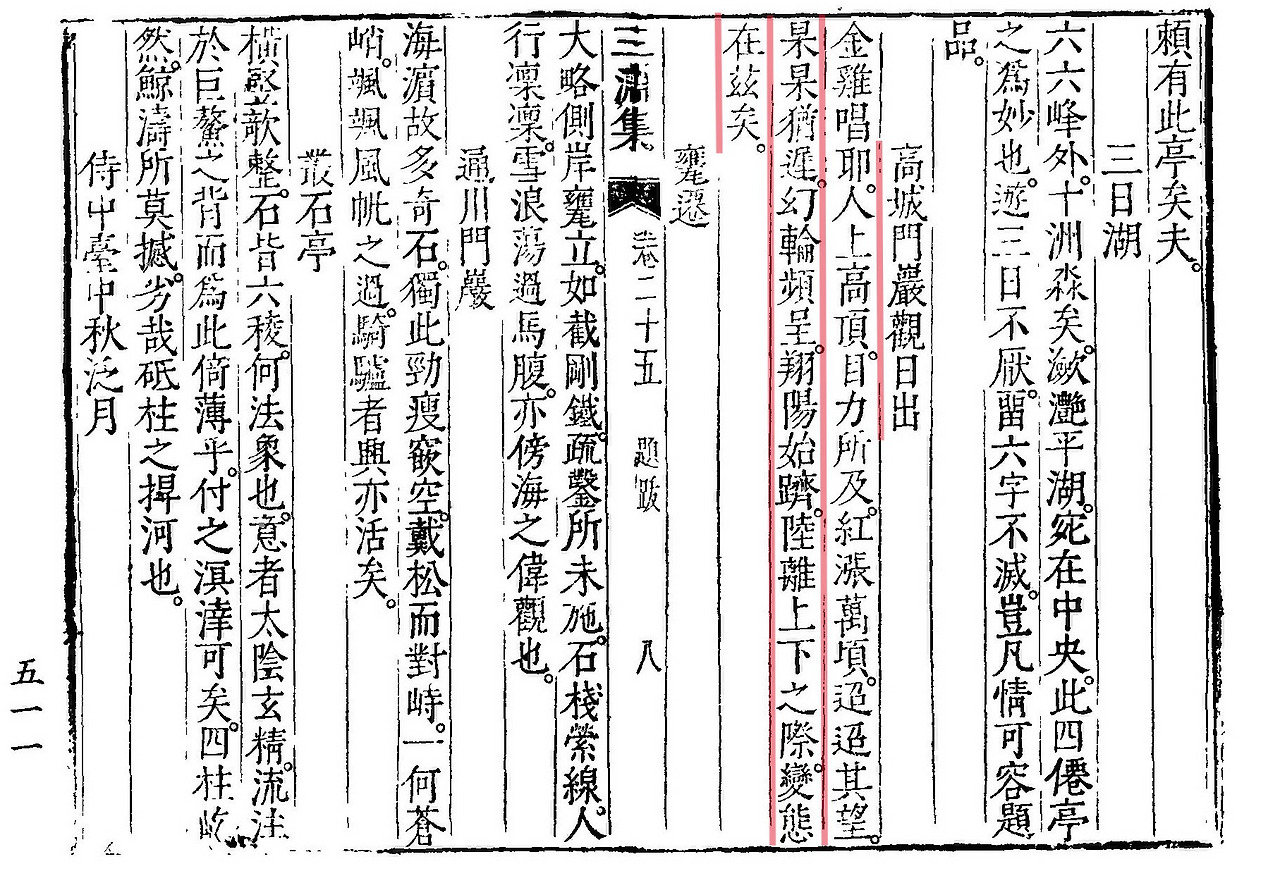 頼有此亭矣夫。
三日湖
六六峰外。十洲淼矣。瀲灔平湖。宛在中央。此四僊亭
之爲妙也。遊三日不厭。畱六字不滅。豈凡情可容題
品。
高城門巖觀日出
金雞唱耶。人上高頂。目力所及。紅漲萬頃。迢迢其望。
杲杲猶遲。幻輪頻呈。翔陽始躋。陸離上下之際。變態
在玆矣。
甕遷
三淵集 卷二十五 題跋 八
大略側岸甕立。如截剛鐵。疏鑿所未施。石棧縈線。人
行凜凜。雪浪蕩過馬腹。亦傍海之偉觀也。
通川門巖
海濵故多奇石。獨此勁瘦窾空。戴松而對峙。一何蒼
峭。颯颯風帆之過。騎驢者興亦活矣。
叢石亭
橫竪欹整。石皆六稜。何法象也。意者太陰玄精。流注
於巨鰲之背而爲此倚薄乎。付之溟涬可矣。四柱屹
然。鯨濤所莫撼。劣哉砥柱之捍河也。
侍中臺。中秋泛月
五一一